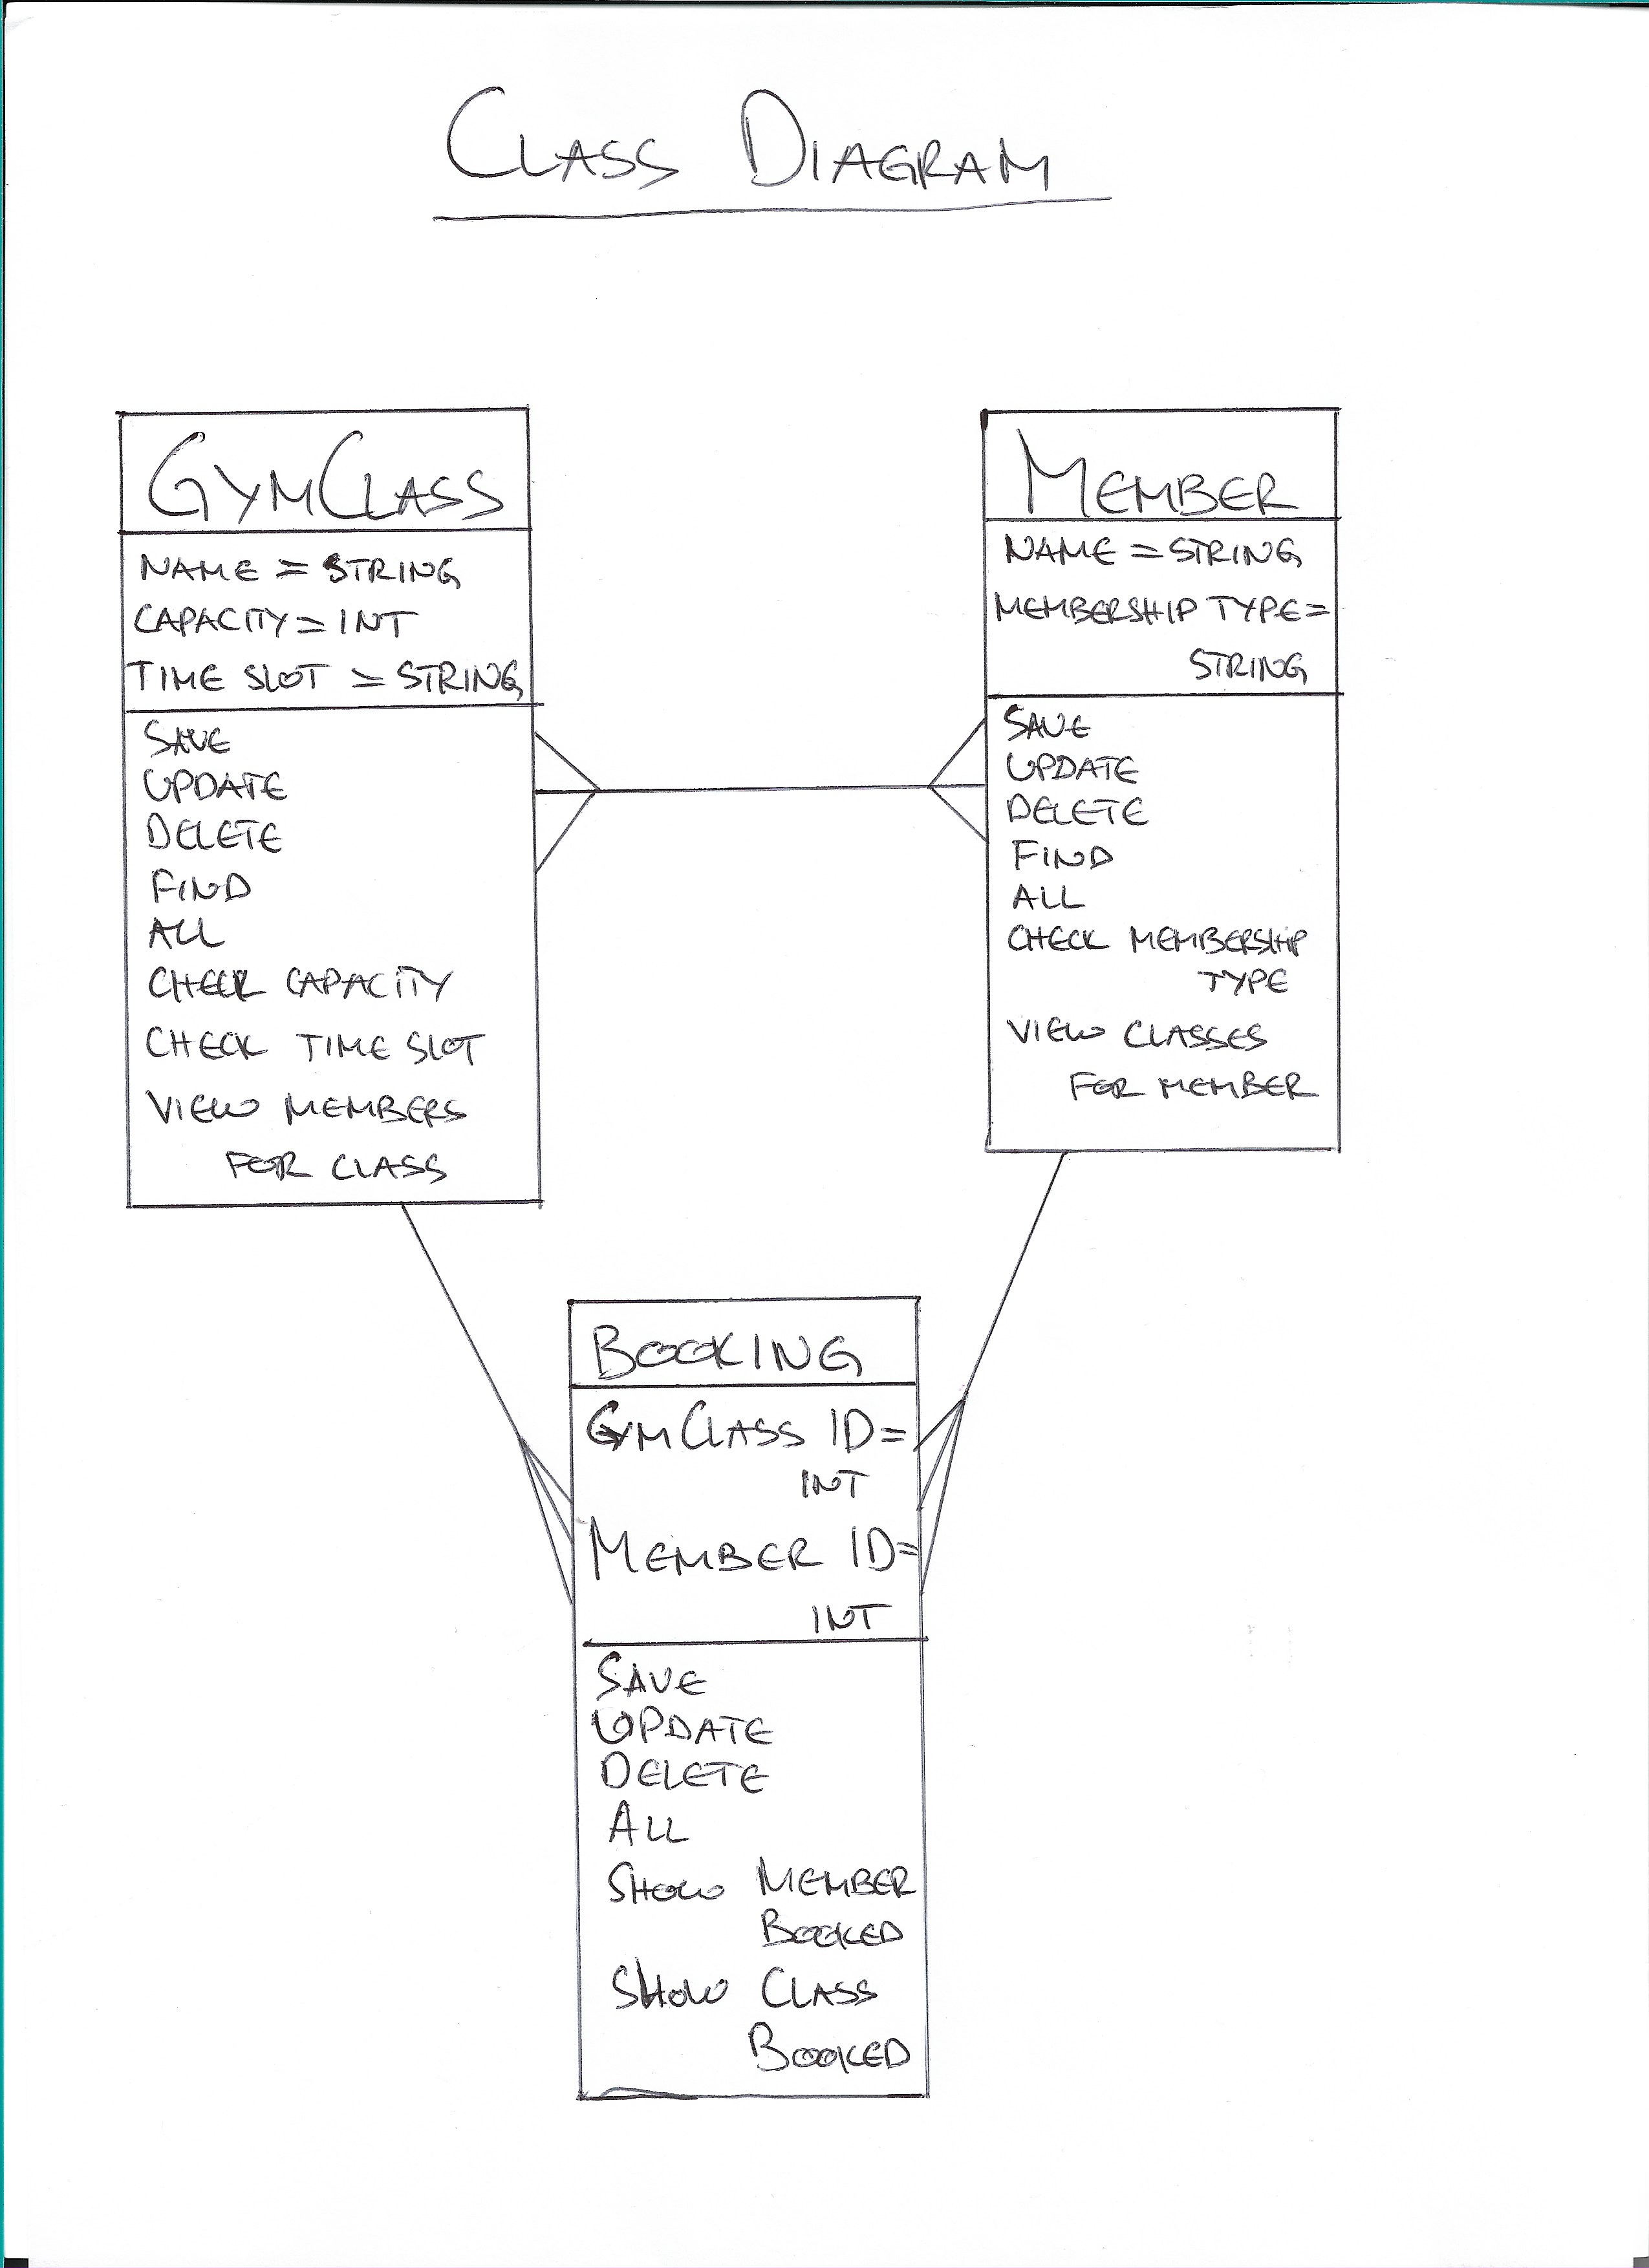 CLASS DIAGRAM
GYMCLASS
NAME = STRING
CAPACITY = INT
TIME SLOT = STRING
SAVE
UPDATE
DELETE
FIND
ALL
CHECK CAPACITY
CHECK TIME SLOT
VIEW MEMBERS
FOR CLASS
MEMBER
NAME = STRING
MEMBERSHIP TYPE =
STRING
SAVE
UPDATE
DELETE
FIND
ALL
CHECK MEMBERSHIP
TYPE
VIEW CLASSES
FOR MEMBER
BOOKING
GYMCLASS ID =
INT
MEMBER ID =
INT
SAVE
UPDATE
DELETE
ALL
SHOW MEMBER
BOOKED
SHOW CLASS
BOOKED